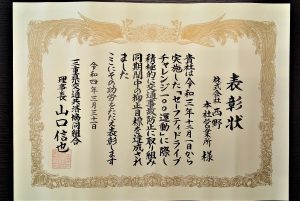 表彰状
株式会社 西野
本社営業所 様
貴社は令和三年十二月一日から
実施した「セーフティドライブ
チャレンジ一〇〇運動」に際し
積極的に交通事故防止に取り組み
同期間中の抑止目標を達成され
ました
ここにその功労をたたえ表彰します
令和四年三月三十一日
三重県交通共済協同組合
理事長 山口信也